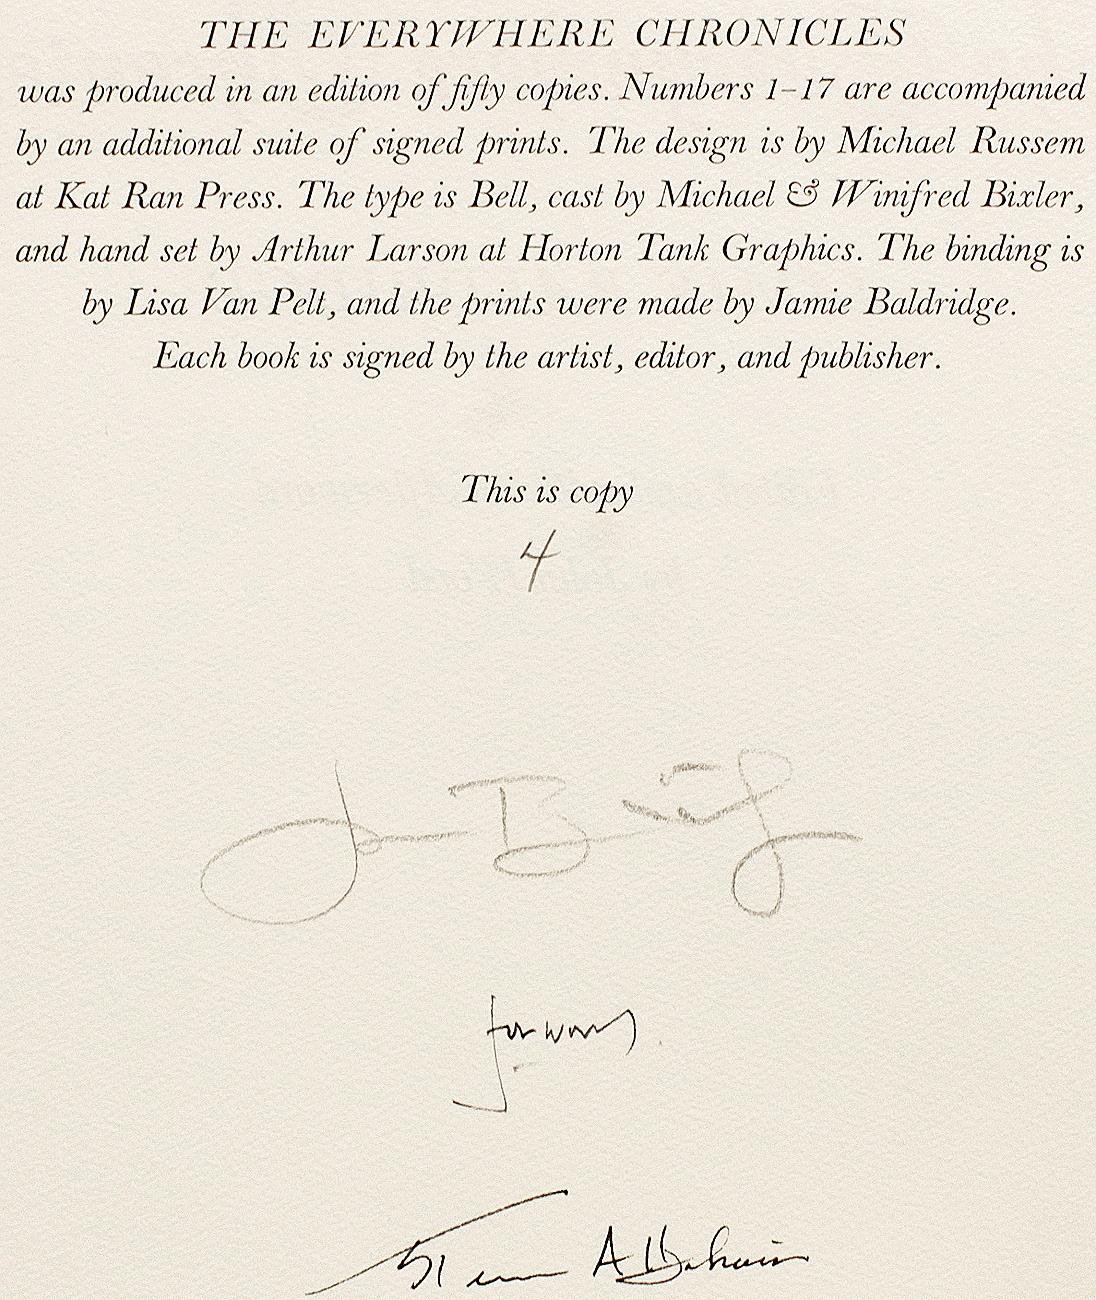 THE EVERYWHERE CHRONICLES
was produced in an edition of fifty copies. Numbers 1–17 are accompanied
by an additional suite of signed prints. The design is by Michael Russem
at Kat Ran Press. The type is Bell, cast by Michael & Winifred Bixler,
and hand set by Arthur Larson at Horton Tank Graphics. The binding is
by Lisa Van Pelt, and the prints were made by Jamie Baldridge.
Each book is signed by the artist, editor, and publisher.
This is copy
4